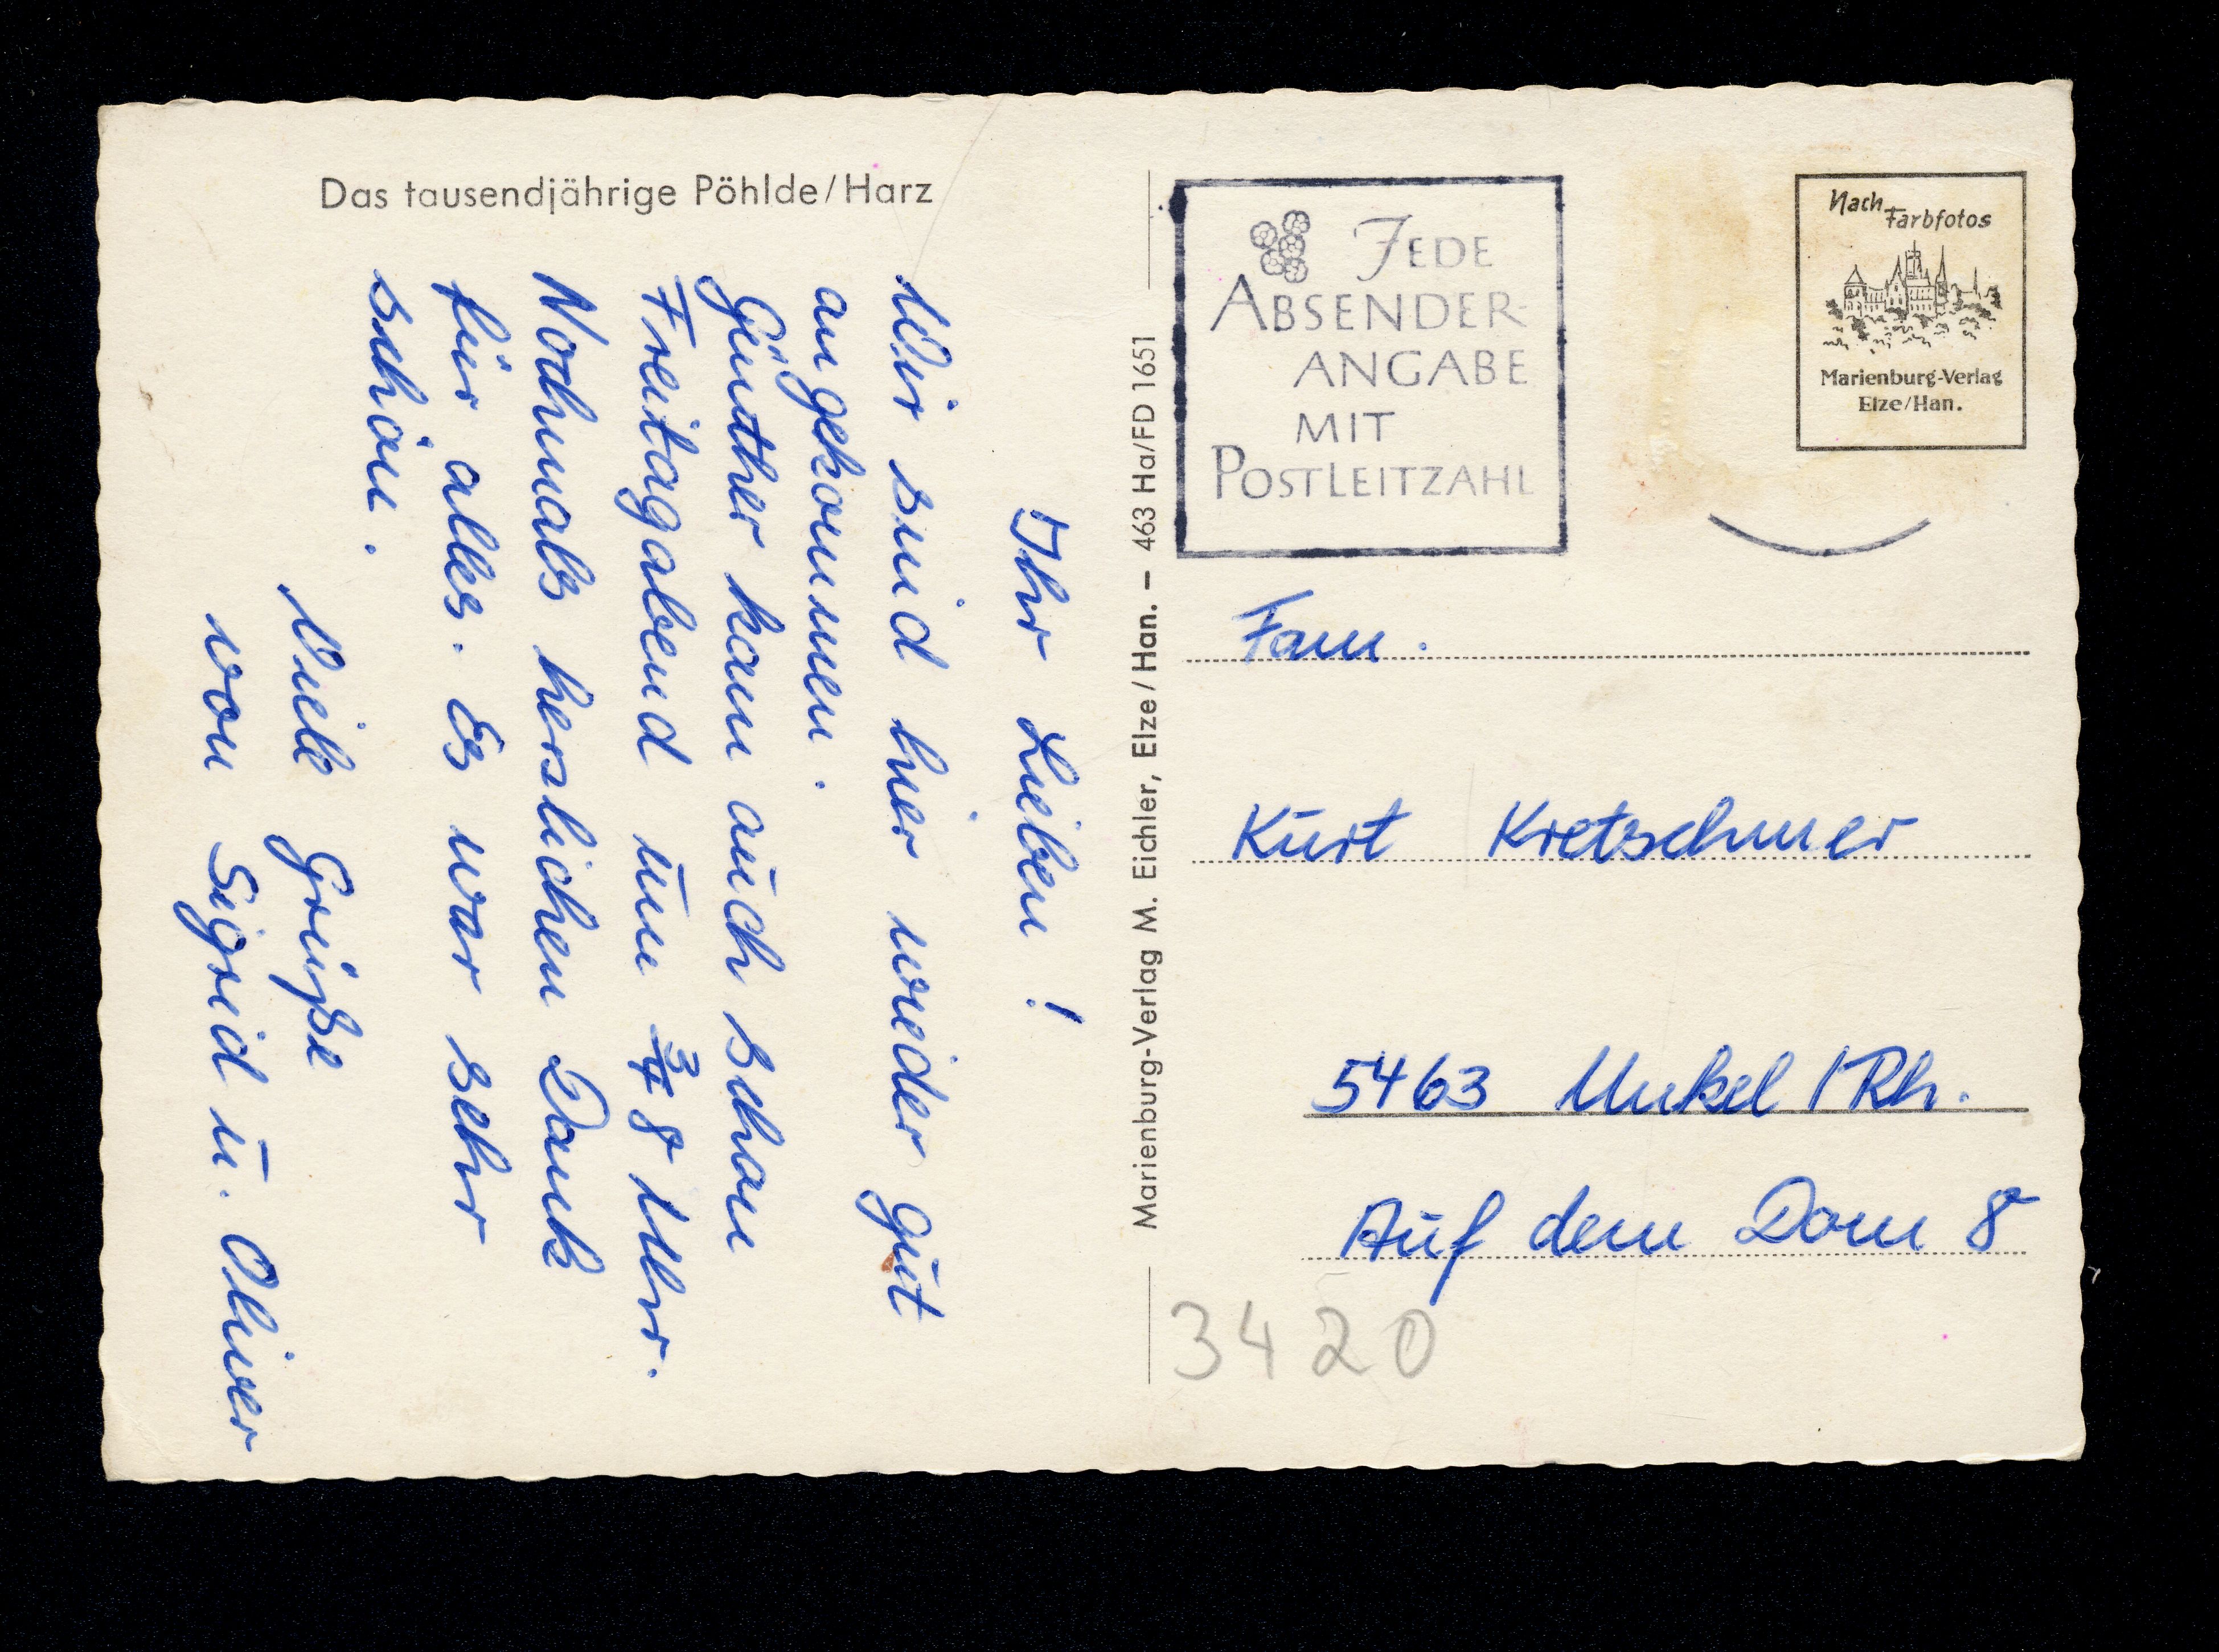 Das tausendjährige Pöhlde/Harz
Ihr Lieben!
Wir sind hier wieder gut
angekommen.
Günther kam auch schon
Freitagabend um ¾ 8 Uhr.
Nochmals herzlichen Dank
für alles. Es war sehr
schön.
Viele Grüße
von Sigrid u. Oliver
Marienburg-Verlag M. Eichler, Elze/Han. — 463 Ha/FD 1651
JEDE
ABSENDER-
ANGABE
MIT
POSTLEITZAHL
Nach Farbfotos
Marienburg-Verlag
Elze/Han.
Fam.
Kurt Kretschmer
5463 Unkel/Rh.
Auf dem Dom 8
3420